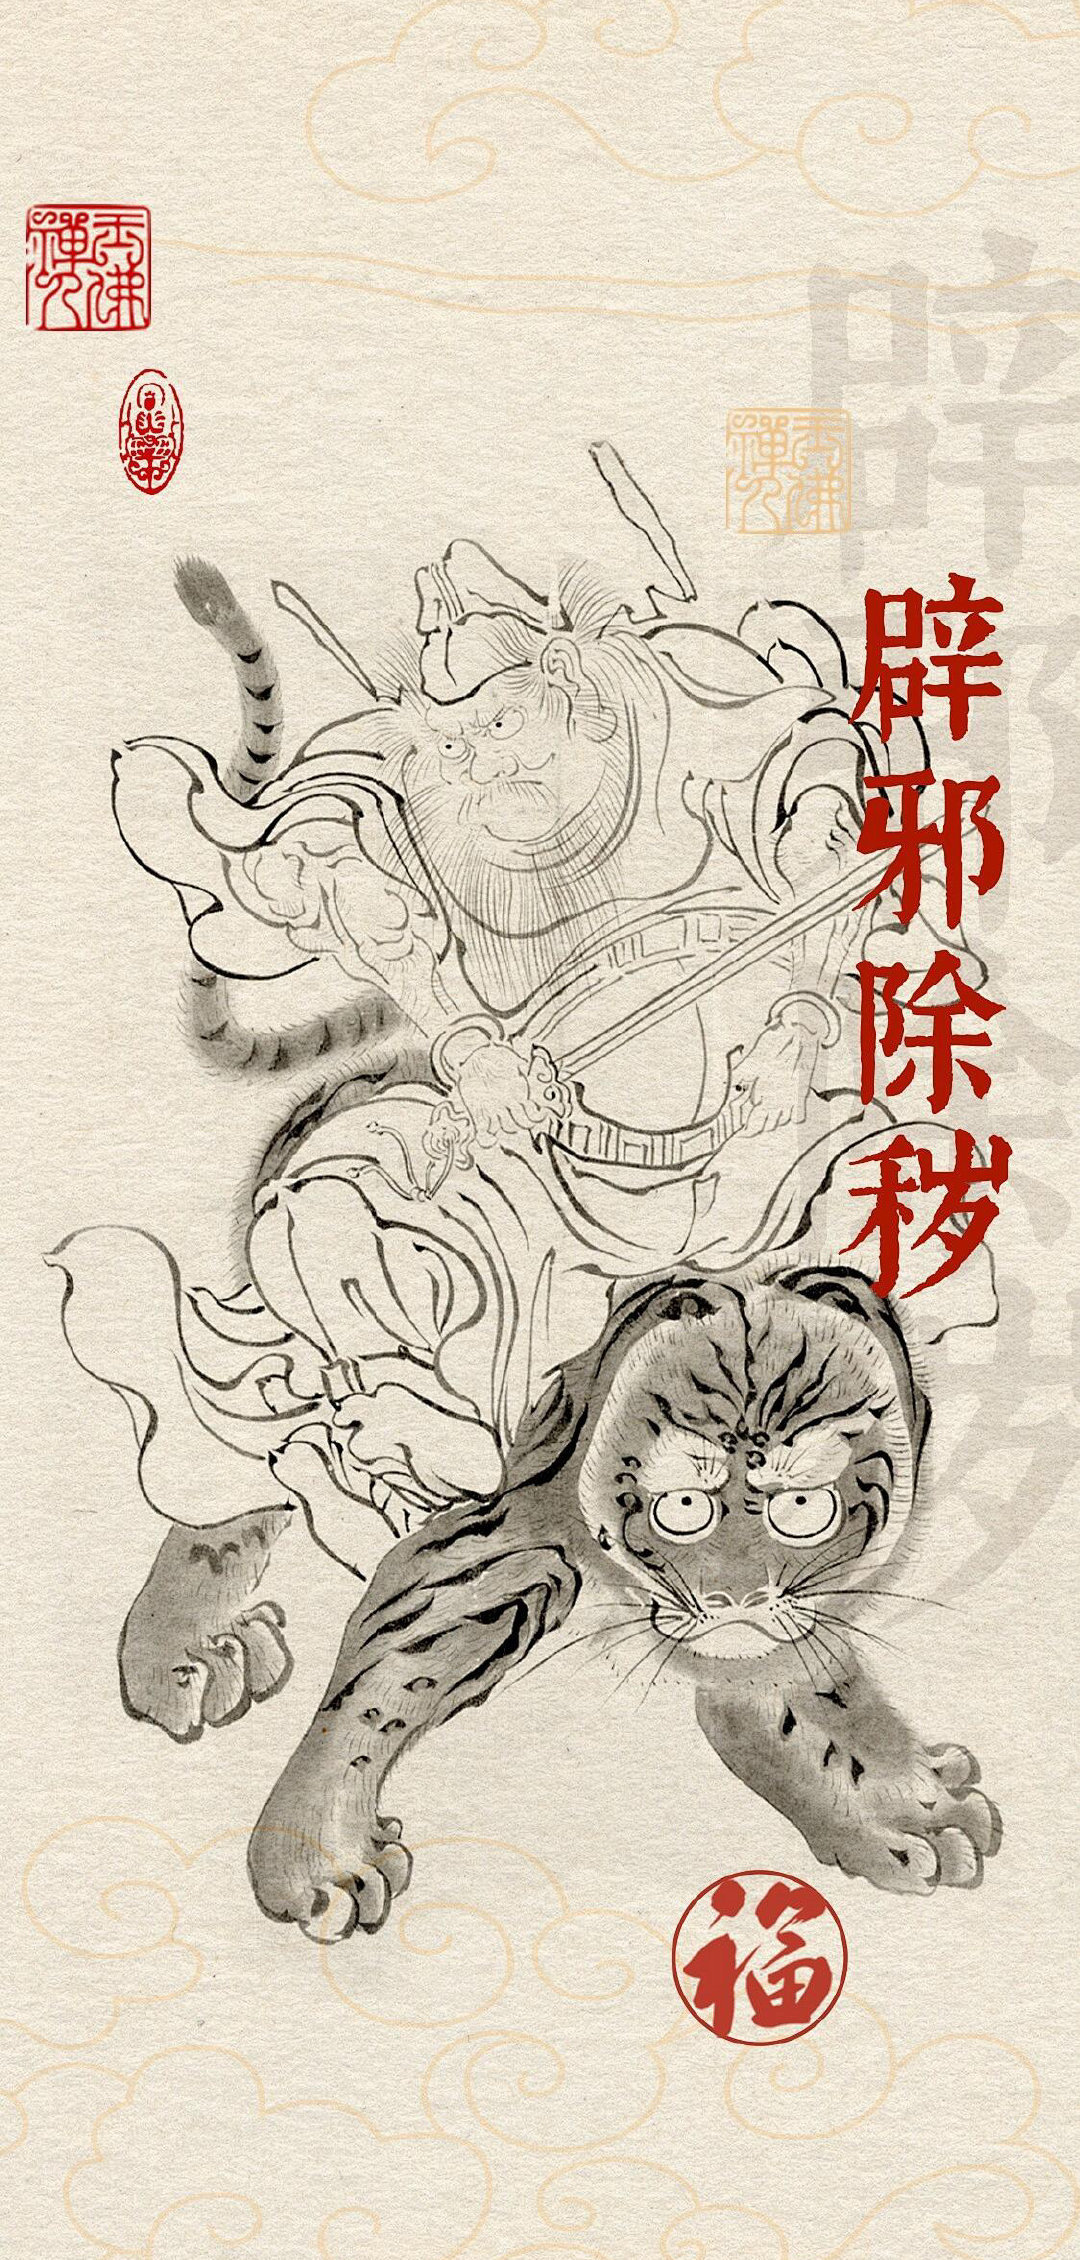 辟邪除秽
福